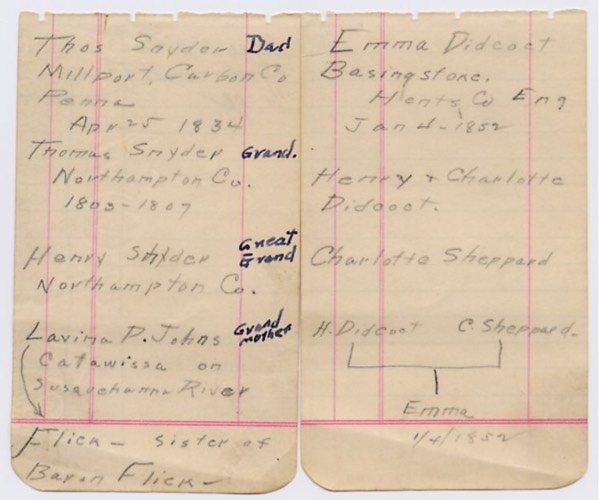 Thos Snyder Dad
Millport, Carbon Co
Penna
Apr 25 1834
Thomas Snyder Grand.
Northampton Co.
1803-1807
Great
Henry Snyder Grand
Northampton Co.
Lavina P. Johns Grand mother
Catawissa on
Susquehanna River
Flick - sister of
Baron Flick -
Emma Didcoct
Basingstoke,
Hents Co Eng
Jan 4-1852
Henry + Charlotte
Didcoct.
Charlotte Sheppard
H. Didcoct C. Sheppard-
Emma
1/4/1852